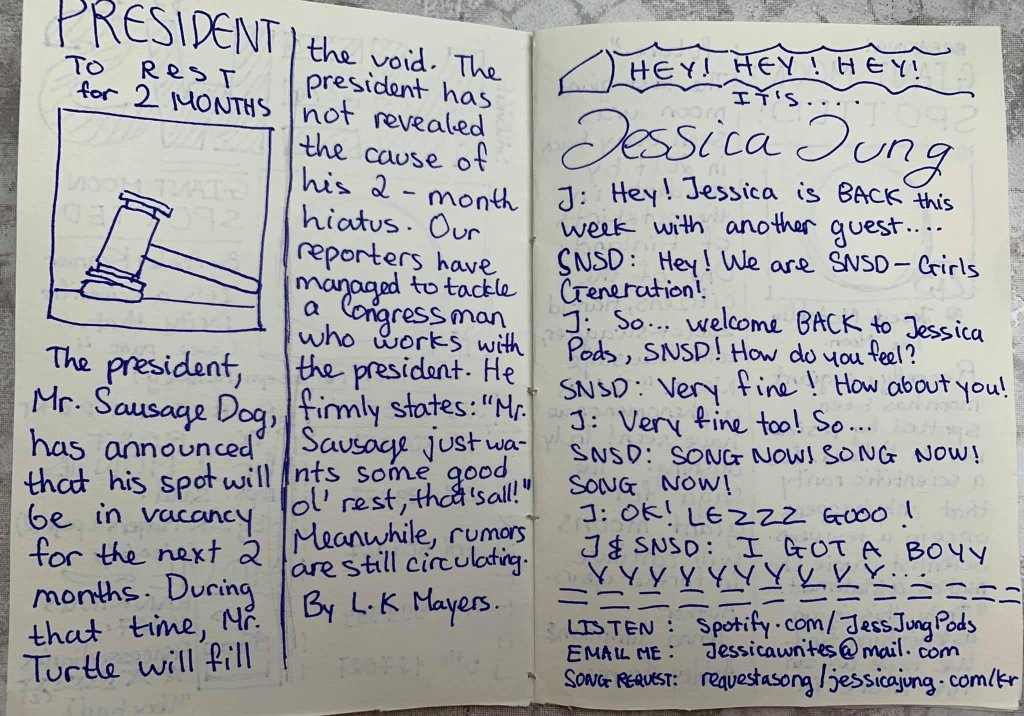 PRESIDENT
TO REST
for 2 MONTHS
The president,
Mr. Sausage Dog,
has announced
that his spot will
be in vacancy
for the next 2
months. During
that time, Mr.
Turtle will fill
the void. The
president has
not revealed
the cause of
his 2-month
hiatus. Our
reporters have
managed to tackle
a Congressman
who works with
the president. He
firmly states: "Mr.
Sausage just wa-
nts some good
ol' rest, that's all!"
Meanwhile, rumors
are still circulating.
By L.K Mayers.
HEY! HEY! HEY!
IT'S....
Jessica Jung
J: Hey! Jessica is BACK this
week with another guest....
SNSD: Hey! We are SNSD-Girls
Generation!
J: So... welcome BACK to Jessica
Pods, SNSD! How do you feel?
SNSD: Very fine! How about you!
J: Very fine too! So...
SNSD: SONG NOW! SONG NOW!
SONG NOW!
J: OK! LEZZZ GOOO!
J & SNSD: I GOT A BOYY
YYYYYYYYYY...
LISTEN: spotify.com/JessJungPods
EMAIL ME: Jessicawrites@mail.com
SONG REQUEST: requestasong/jessicajung.com/kr